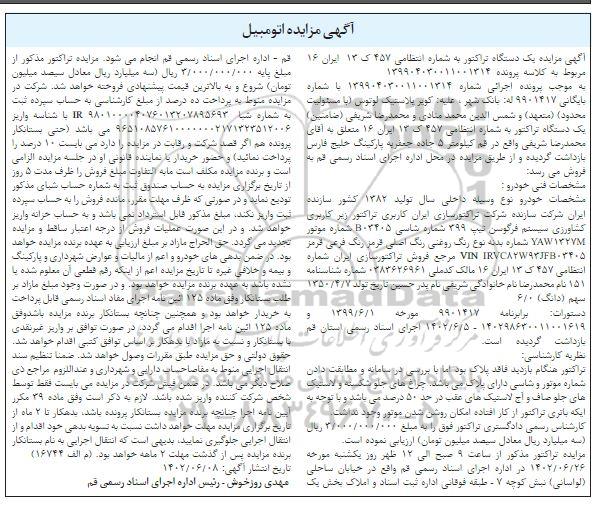 آگهی مزایده اتومبیل
آگهی مزایده یک دستگاه تراکتور به شماره انتظامی ۴۵۷ ک ۱۳ ایران ۱۶
مربوط به کلاسه پرونده ۱۳۹۹۰۴۰۳۰۰۱۱۰۰۱۳۱۴
به موجب پرونده اجرائی شماره ۱۳۹۹۰۴۰۳۰۰۱۱۰۰۱۳۱۴ با شماره
بایگانی ۹۹۰۱۴۱۷ له: بانک شهر، علیه: کویر پلاستیک لوتوس (با مسئولیت
محدود) (متعهد) و شمس الدین محمد منادی و محمدرضا شریفی (ضامنین)
یک دستگاه تراکتور به شماره انتظامی ۴۵۷ ک ۱۳ ایران ۱۶ متعلق به آقای
محمدرضا شریفی واقع در قم کیلومتر ۵ جاده جعفریه پارکینگ خلیج فارس
بازداشت گردیده و از طریق مزایده در محل اداره اجرای اسناد رسمی قم به
فروش می رسد:
مشخصات فنی خودرو :
مشخصات خودرو نوع وسیله داخلی سال تولید ۱۳۸۲ کشور سازنده
ایران شرکت سازنده شرکت تراکتورسازی ایران کاربری تراکتور زیر کاربری
کشاورزی سیستم فرگوسن تیپ ۳۹۹ شماره شاسی B۰۳۴۰۵ شماره موتور
YAW۱۳۲۷M شماره بدنه نوع رنگ روغنی رنگ اصلی قرمز رنگ فرعی قرمز
VIN IRVC۸۲W۹۳JFB۰۳۴۰۵ مرجع فروش تراکتورسازی ایران شماره
انتظامی ۴۵۷ ک ۱۳ ایران ۱۶ مالک کدملی ۰۳۸۳۶۲۶۹۶۱ شماره شناسنامه
۱۵۱ نام محمدرضا نام خانوادگی شریفی نام پدر حسین تاریخ تولد ۱۳۵۰/۴/۷
سهم (دانگ) ۶/۰
دستورات: برابرنامه ۹۹۰۱۴۱۷ مورخه ۱۳۹۹/۶/۱ و
۱۴۰۲۹۸۶۳۰۰۱۱۰۰۱۶۱۹ - ۱۴۰۲/۶/۵ اجرای اسناد رسمی استان قم
بازداشت گردیده است.
نظریه کارشناسی:
تراکتور هنگام بازدید فاقد پلاک بود اما با بررسی در سامانه و مطابقت دادن
شماره موتور و شاسی دارای پلاک می باشد. چراغ های جلو شکسته و لاستیک
های جلو صاف و آج لاستیک های عقب در حد ۵۰ درصد می باشد و با توجه به
اینکه باتری تراکتور از کار افتاده امکان روشن شدن موتور وجود نداشت
کارشناس رسمی دادگستری تراکتور فوق را به مبلغ ۳/۰۰۰/۰۰۰/۰۰۰ ریال
(سه میلیارد ریال معادل سیصد میلیون تومان) ارزیابی نموده است.
مزایده تراکتور مذکور از ساعت ۹ صبح الی ۱۲ ظهر روز یکشنبه مورخه
۱۴۰۲/۰۶/۲۶ در اداره اجرای اسناد رسمی قم واقع در خیابان ساحلی
(لواسانی) نبش کوچه ۷ - طبقه فوقانی اداره ثبت اسناد و املاک بخش یک
قم - اداره اجرای اسناد رسمی قم انجام می شود. مزایده تراکتور مذکور از
مبلغ پایه ۳/۰۰۰/۰۰۰/۰۰۰ ریال (سه میلیارد ریال معادل سیصد میلیون
تومان) شروع و به بالاترین قیمت پیشنهادی فروخته خواهد شد. شرکت در
مزایده منوط به پرداخت ده درصد از مبلغ کارشناسی به حساب سپرده ثبت
به شماره شبا IR ۹۸۰۱۰۰۰۰۴۰۷۶۰۱۳۲۰۷۸۹۵۶۹۳ با شناسه واریز
۹۶۵۱۰۸۵۷۶۱۰۰۰۰۰۰۰۰۲۱۷۱۳۲۳۵۱۲۰۰۶ می باشد (حتی بستانکار
پرونده هم اگر قصد شرکت و رقابت در مزایده را دارد می بایست ۱۰ درصد را
پرداخت نمائید) و حضور خریدار یا نماینده قانونی او در جلسه مزایده الزامی
است و برنده مزایده مکلف است مابه التفاوت مبلغ فروش را ظرف مدت ۵ روز
از تاریخ برگزاری مزایده به حساب صندوق ثبت به شماره حساب شبای مذکور
تودیع نماید و در صورتی که ظرف مهلت مقرر، مانده فروش را به حساب سپرده
ثبت واریز نکند، مبلغ مذکور قابل استرداد نمی باشد و به حساب خزانه واریز
خواهد شد. و در این صورت عملیات فروش از درجه اعتبار ساقط و مزایده
تجدید می گردد. حق الحراج مازاد بر مبلغ ارزیابی به عهده برنده مزایده خواهد
بود. در ضمن بدهی های خودرو و اعم از مالیات و عوارض شهرداری و پارکینگ
و بیمه و خلافی غیره تا تاریخ مزایده اعم از اینکه رقم قطعی آن معلوم شده یا
نشده باشد به عهده برنده مزایده خواهد بود. و در صورت وجود مبلغ مازاد بر
طلب بستانکار وفق ماده ۱۲۵ آئین نامه اجرای مفاد اسناد رسمی قابل پرداخت
به خریدار خواهد بود و همچنین چنانچه بستانکار برنده مزایده باشدوفق
ماده ۱۲۵ آئین نامه اجرا اقدام می گردد. در صورت توافق بر واریز غیرنقدی
با بستانکار و نسبت به مازاد با بدهکار بر اساس توافق کتبی اقدام خواهد شد.
حقوق دولتی و حق مزایده طبق مقررات وصول خواهد شد. ضمنا تنظیم سند
انتقال اجرایی منوط به مفاصاحساب دارایی و شهرداری و عنداللزوم مراجع ذی
صلاح دیگر می باشد. در ضمن فیش شرکت در مزایده می بایست فقط توسط
شخص شرکت کننده واریز شده باشد. لازم به ذکر است وفق ماده ۳۹ مکرر
آیین نامه اجرا چنانچه برنده مزایده بستانکار پرونده باشد، بدهکار تا ۲ ماه از
تاریخ برگزاری مزایده مهلت خواهد داشت نسبت به تسویه بدهی خود اقدام و از
انتقال اجرایی جلوگیری نمایید، بدیهی است که انتقال اجرایی به نام بستانکار
برنده مزایده پس از گذشت مهلت ۲ ماهه خواهد بود. (م الف ۱۶۷۴۴)
تاریخ انتشار آگهی: ۱۴۰۲/۰۶/۰۸
مهدی روزخوش - رئیس اداره اجرای اسناد رسمی قم